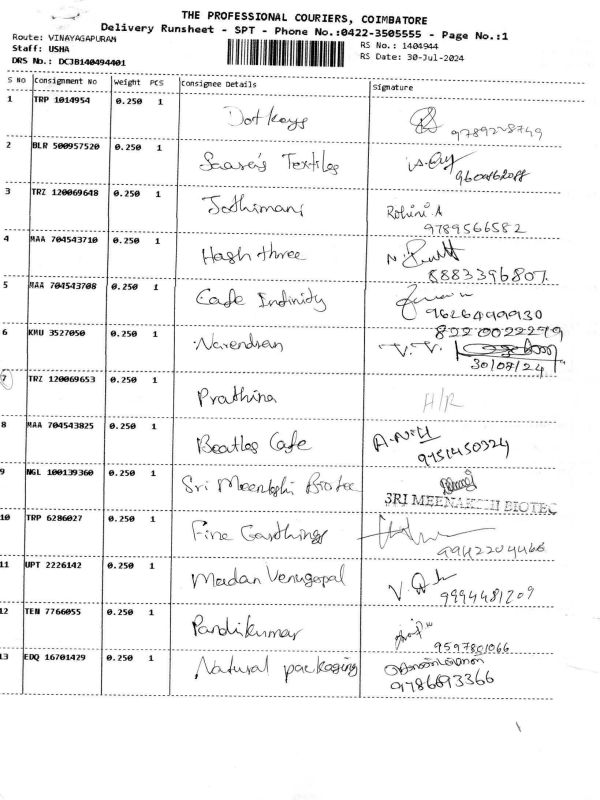 THE PROFESSIONAL COURIERS, COIMBATORE
Delivery Runsheet - SPT - Phone No.:0422-3505555 - Page No.:1
Route: VINAYAGAPURAM
RS No.: 1404944
Staff: USHA
RS Date: 30-Jul-2024
DRS No.: DCJB140494401
S NO Consignment No Weight PCS Consignee Details Signature
1 TRP 1014954 0.250 1 Dot Keys
2 BLR 500957520 0.250 1 Saara's Textiles
3 TRZ 120069648 0.250 1 Jothimani Rohini A
9789566582
4 MAA 704543710 0.250 1 Hash three
8883396807
5 MAA 704543708 0.250 1 Cafe Infinity
9626499930
6 KMU 3527050 0.250 1 Narendran
8220022279
30/07/24
7 TRZ 120069653 0.250 1 Prathina H/R
8 MAA 704543825 0.250 1 Beatles Cafe
9751450324
9 NGL 100139360 0.250 1 Sri Meenakshi Biotec
SRI MEENAKSHI BIOTEC
10 TRP 6286027 0.250 1 Fine
9942204466
11 UPT 2226142 0.250 1 Madan Venugopal
9994481209
12 TEN 7766055 0.250 1 Pandikumar
9597801066
13 EDQ 16701429 0.250 1 Natural packaging
9786693366